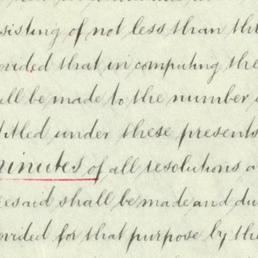 sisting of not less than th
ovided that in computing the
ll be made to the number
titled under these presents
inutes of all resolutions a
esaid shall be made and du
ovided for that purpose by the